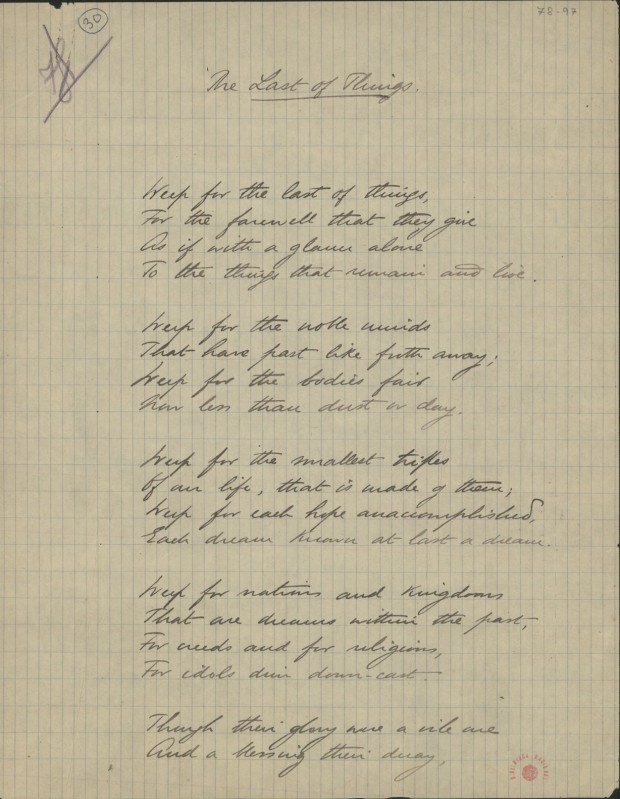 30
78-97
The Last of Things.
Weep for the last of things,
For the farewell that they give
As if with a glance alone
To the things that remain and live.
Weep for the noble minds
That have past like froth away;
Weep for the bodies fair
Now less than dust or clay.
Weep for the smallest trifles
Of our life, that is made of them;
Weep for each hope unaccomplished,
Each dream known at last a dream.
Weep for nations and kingdoms
That are dreams within the past,
For creeds and for religions,
For idols dim down-cast.
Though their glory were a vile one
And a blessing their decay,